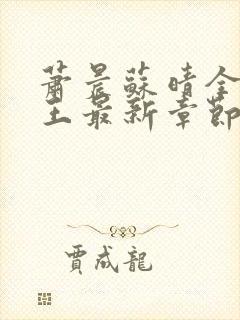 蕭晨蘇晴全
王最新章節
賈成龍